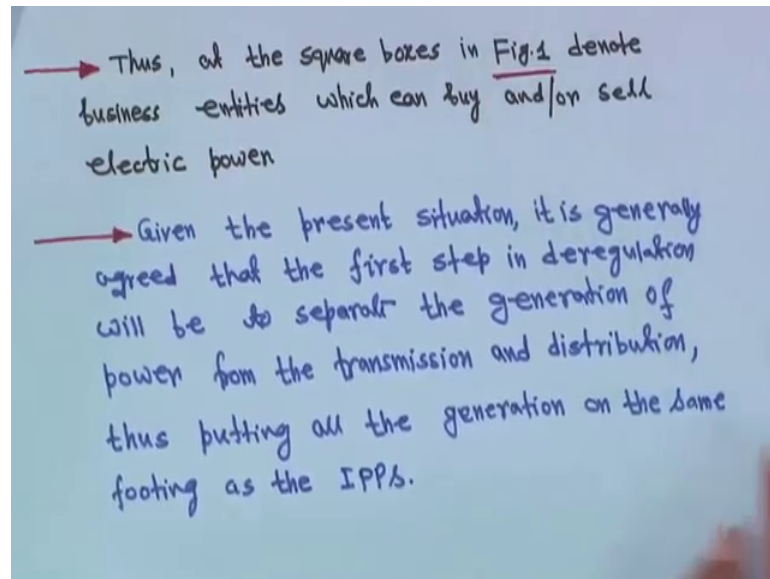 Thus, all the square boxes in Fig.1 denote
business entities which can buy and/or sell
electric power
Given the present situation, it is generally
agreed that the first step in deregulation
will be to separate the generation of
power from the transmission and distribution,
thus putting all the generation on the same
footing as the IPPs.